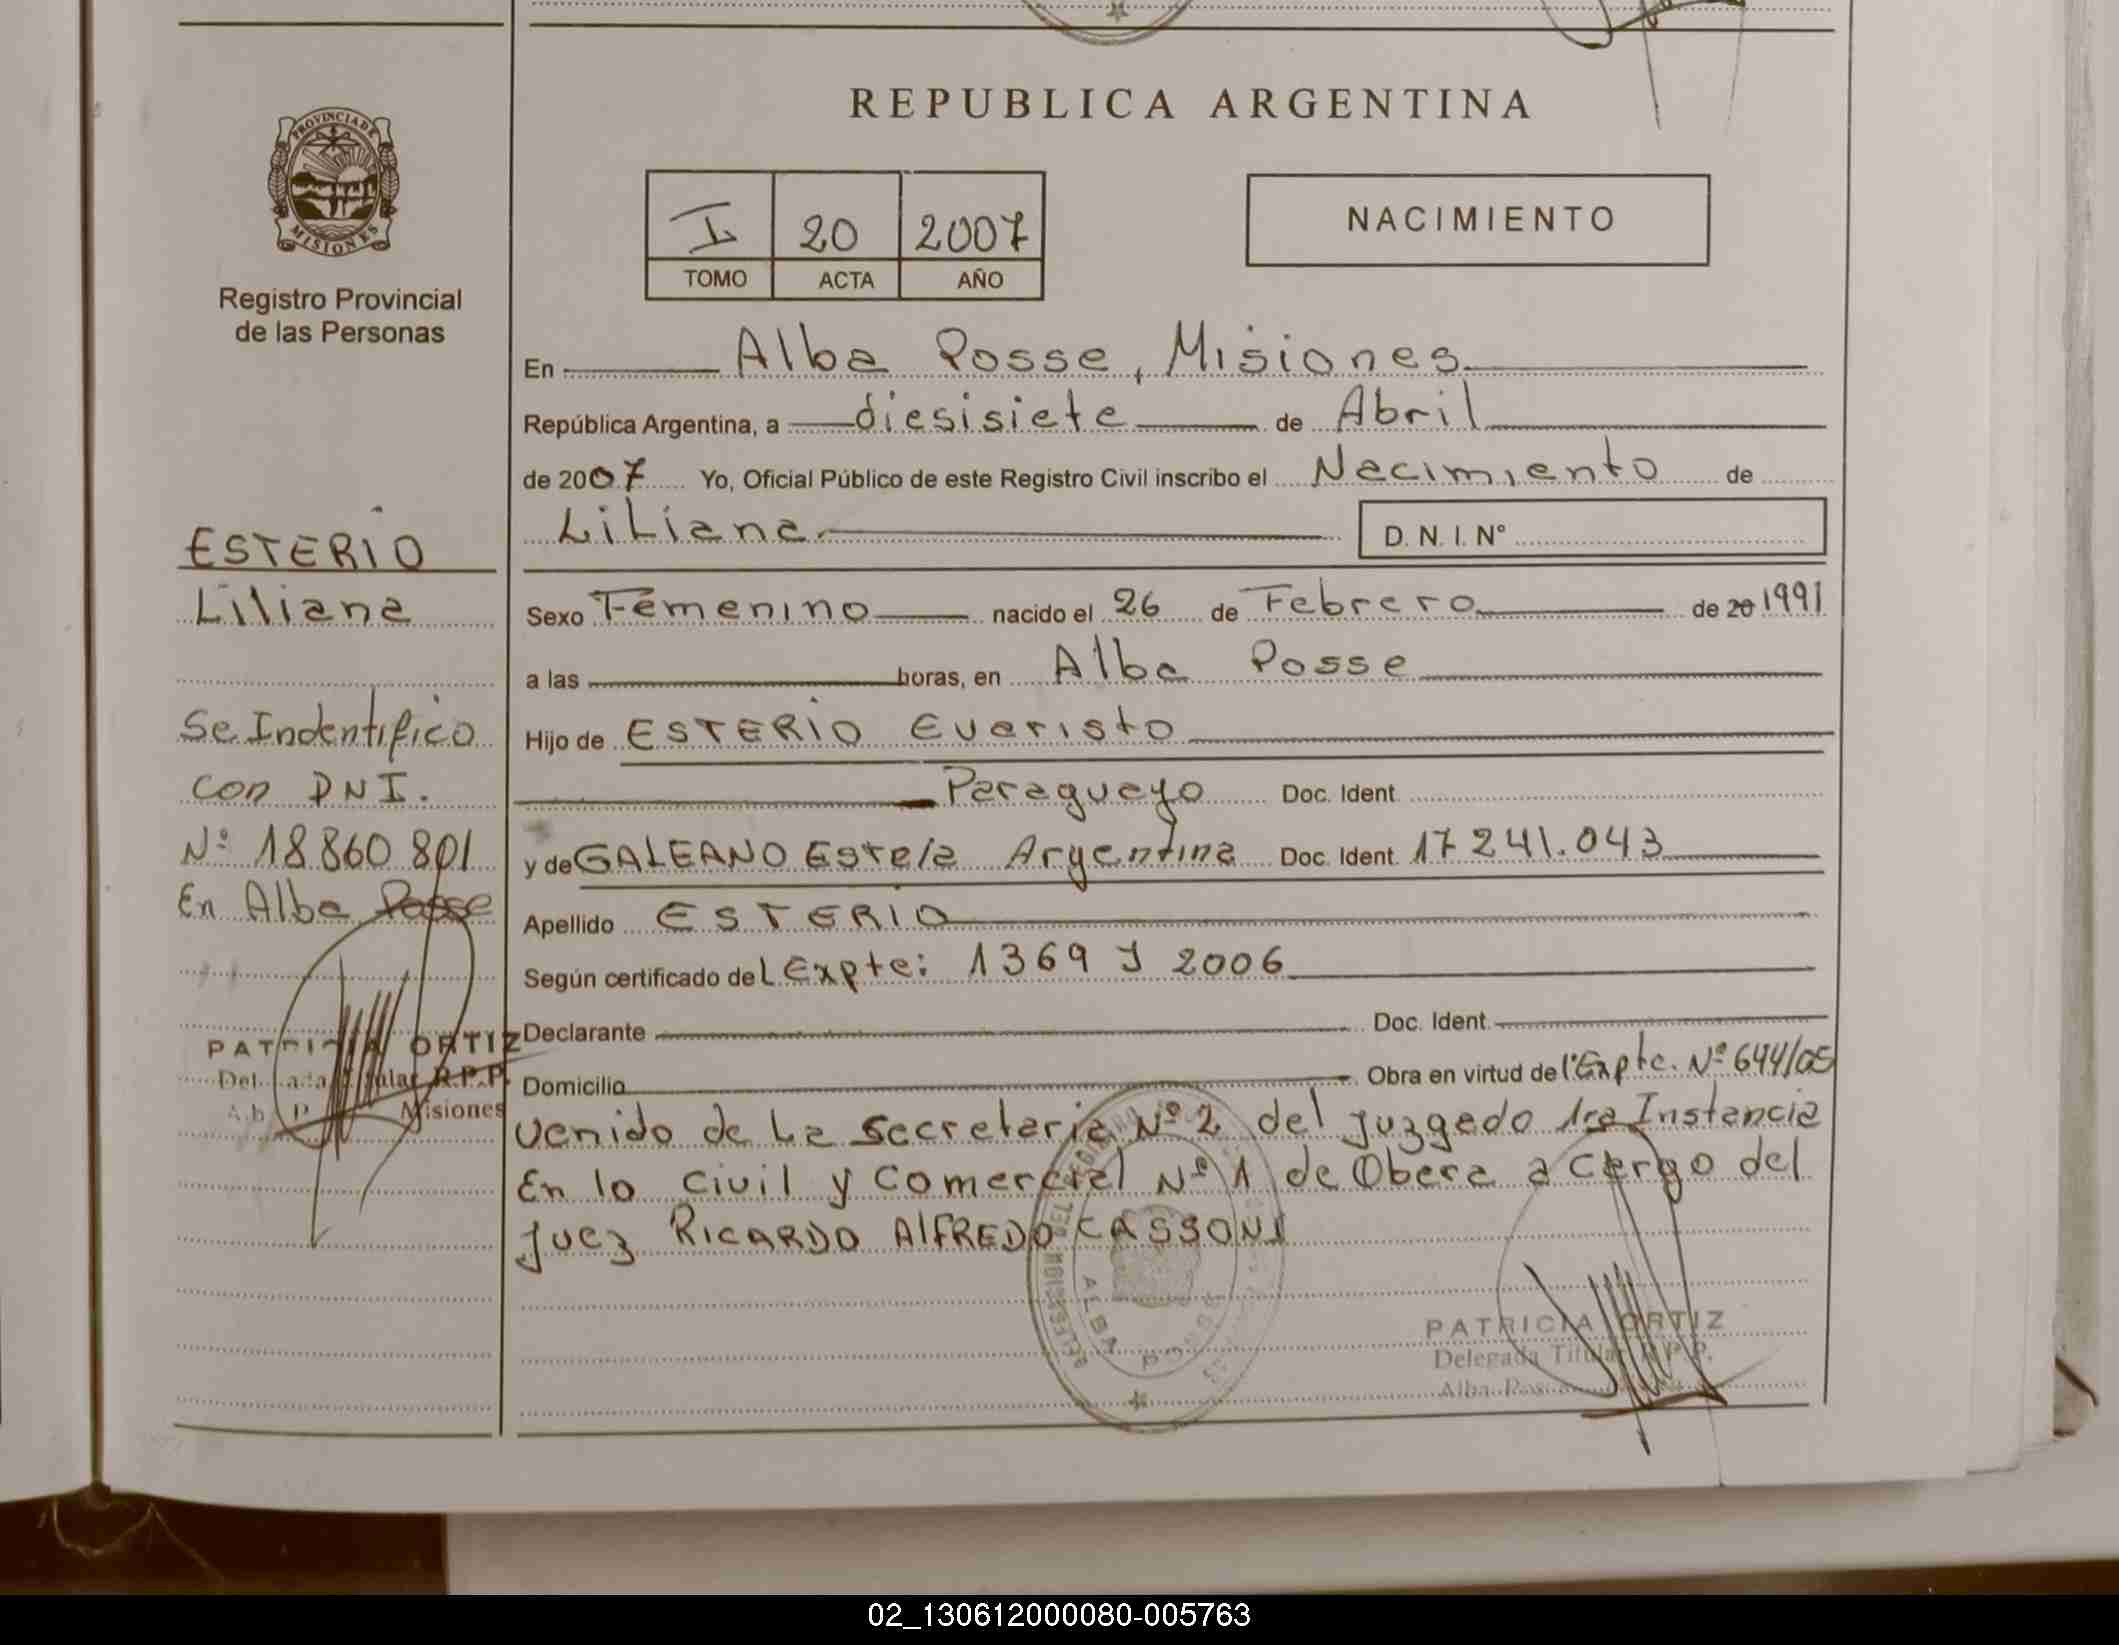 REPUBLICA ARGENTINA
PROVINCIA DE
MISIONES
Registro Provincial
de las Personas
I 20 2007
TOMO ACTA AÑO
NACIMIENTO
En Alba Posse, Misiones
República Argentina, a diesisiete de Abril
de 2007 Yo, Oficial Público de este Registro Civil inscribo el Nacimiento de
Liliana D. N. I. N°
Sexo Femenino nacido el 26 de Febrero de 20 1991
a las horas, en Alba Posse
Hijo de ESTERIO Evaristo
Paraguayo Doc. Ident.
y de GALEANO Estela Argentina Doc. Ident. 17 241.043
Apellido ESTERIO
Según certificado del Expte: 1369 J 2006
Declarante Doc. Ident.
Domicilio Obra en virtud del Expte. Nº 644/05
venido de La Secretaria Nº 2 del juzgado 1ra Instancia
En lo civil y comercial Nº 1 de Obera a cargo del
juez RICARDO AlFREDO CASSONI
ESTERIO
Liliana
Se Indentifico
con DNI.
Nº 18 860 801
En Alba Posse
PATRICIA ORTIZ
Delegada Titular R.P.P.
Misiones
ALBA POSSE
PATRICIA ORTIZ
Delegada Titular R.P.P.
Alba Posse
02_130612000080-005763